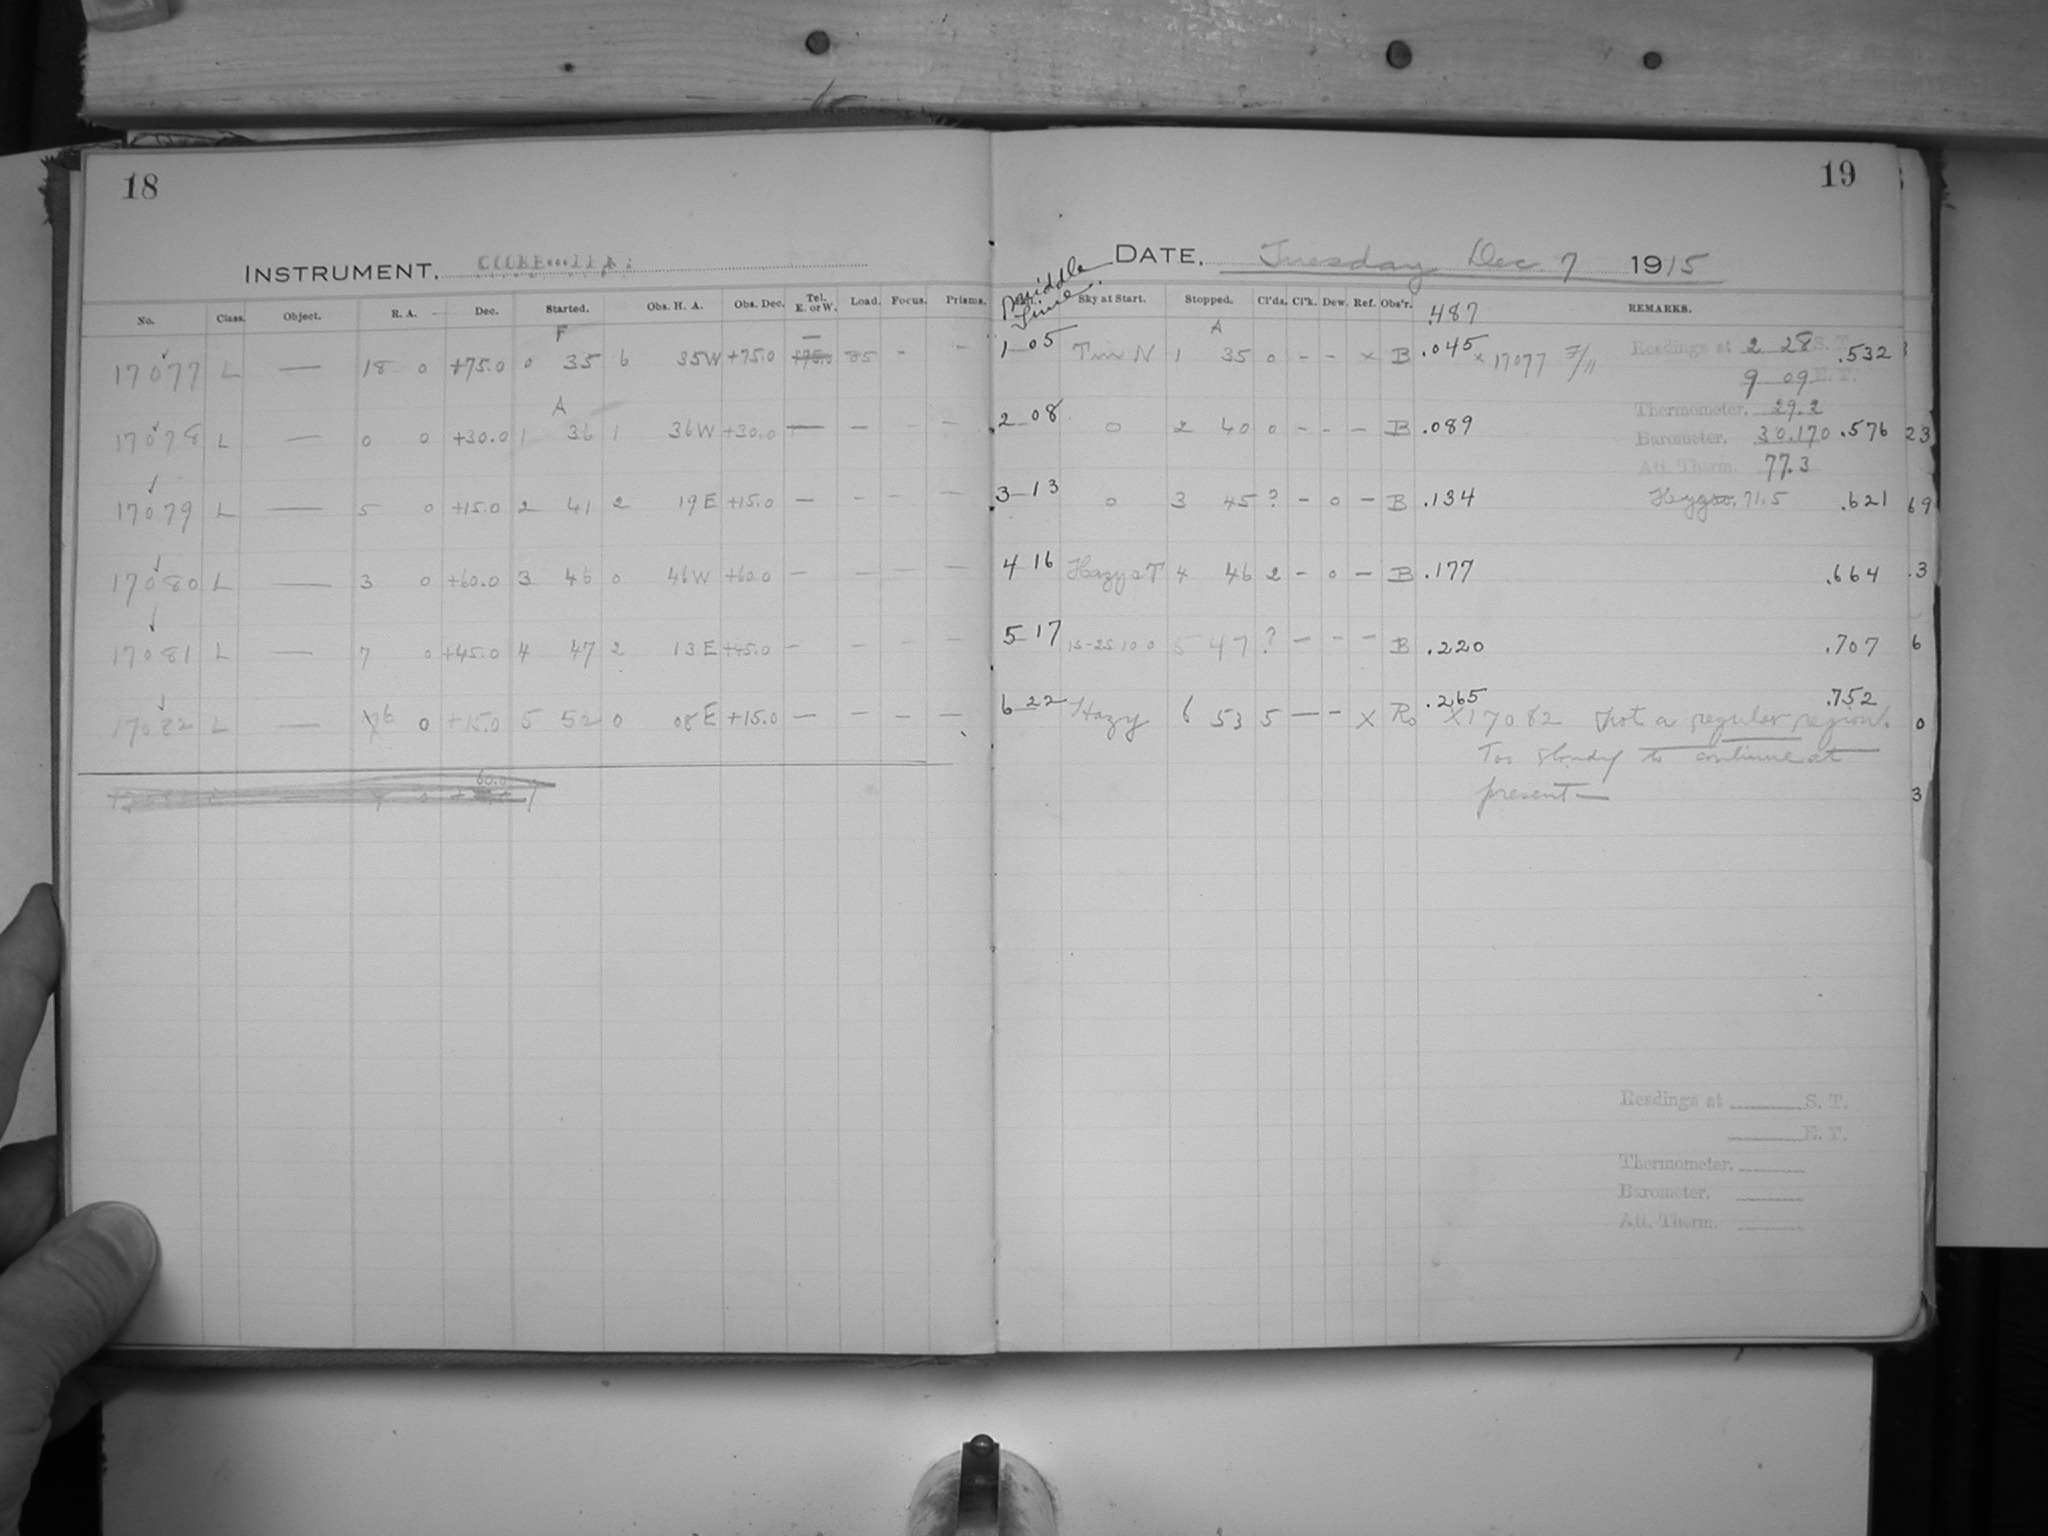 18
19
INSTRUMENT.
DATE. Tuesday Dec 7 1915
No. Class. Object. R. A. Dec. Started. Obs. H. A. Obs. Dec. Tel. E. or W. Load. Focus. Prisms. Middle Time. Sky at Start. Stopped. Cl'ds. Cl'k. Dew. Ref. Obs'r. .487 REMARKS.
F A
17077 L — 18 0 +75.0 0 35 6 35W +75.0 — 85 - - 1 05 Tw N 1 35 0 - - x B .045 x 17077 F/11 Readings at 2 28 S. T. .532
9 09 E. T.
A
Thermometer. 29.2
17078 L — 0 0 +30.0 1 36 1 36W +30.0 — - - - 2 08 0 2 40 0 - - - B .089 Barometer. 30.170 .576 23
Att. Therm. 77.3
17079 L — 5 0 +15.0 2 41 2 19E +15.0 — — — — 3 13 0 3 45 ? - 0 - B .134 Hygro. 71.5 .621 69
17080 L — 3 0 +60.0 3 46 0 46W +60.0 — — — — 4 16 Hazy 4 46 2 - 0 - B .177 .664 .3
17081 L — 7 0 +45.0 4 47 2 13E +45.0 — — — — 5 17 5 47 ? - - - B .220 .707 6
17082 L — 6 0 +15.0 5 52 0 08E +15.0 — — — — 6 22 Hazy 6 53 5 — - x Ro .265 .752
X17082 Not a regular region. 0
Too cloudy to continue at
60.0
present — 3
Readings at S. T.
E. T.
Thermometer.
Barometer.
Att. Therm.